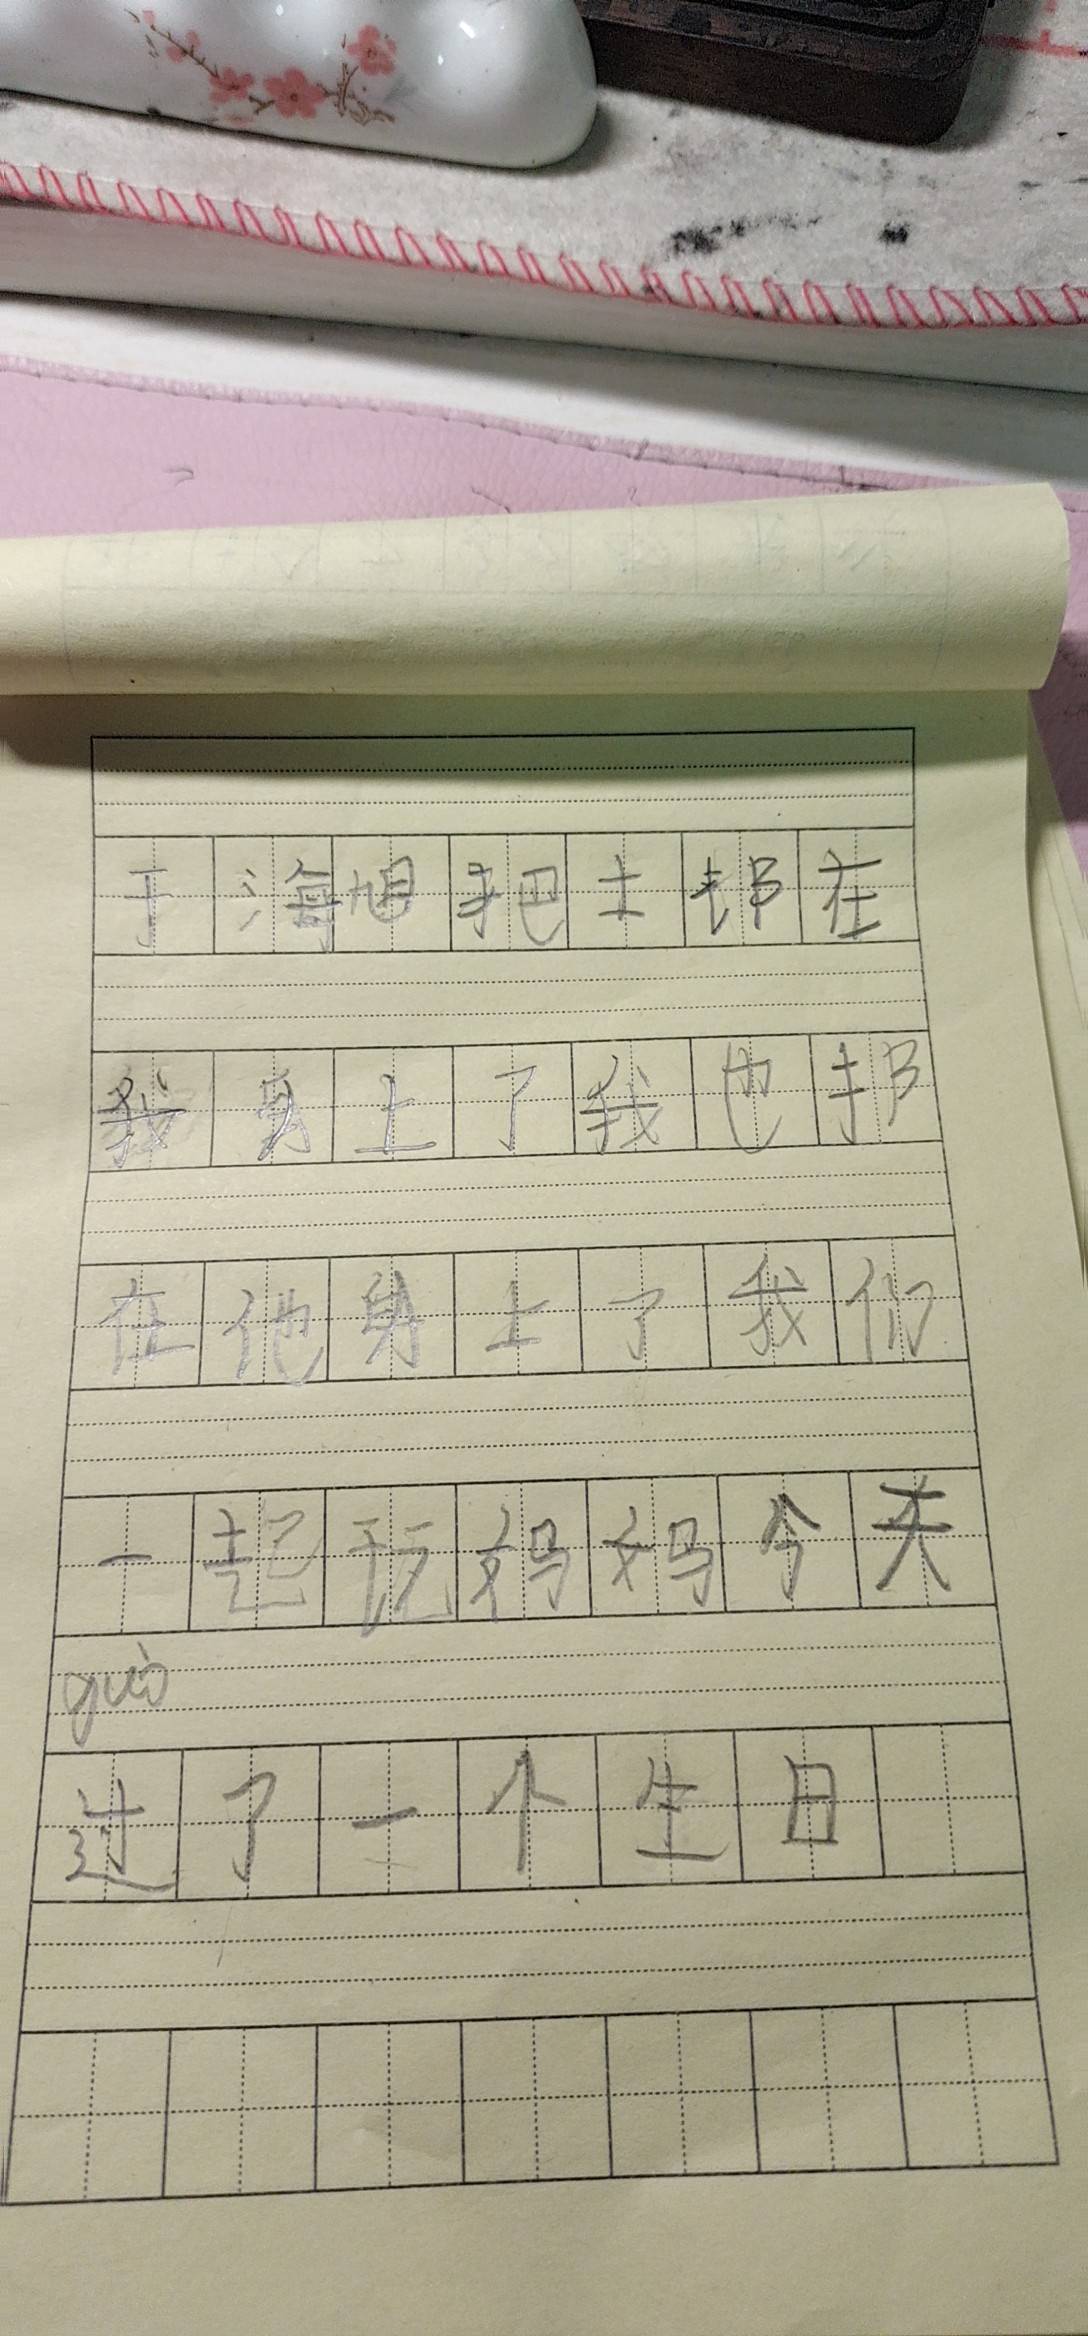 于海旭把土扔在
我身上了我也扔
在他身上了我们
一起玩妈妈今天
guò
过了一个生日